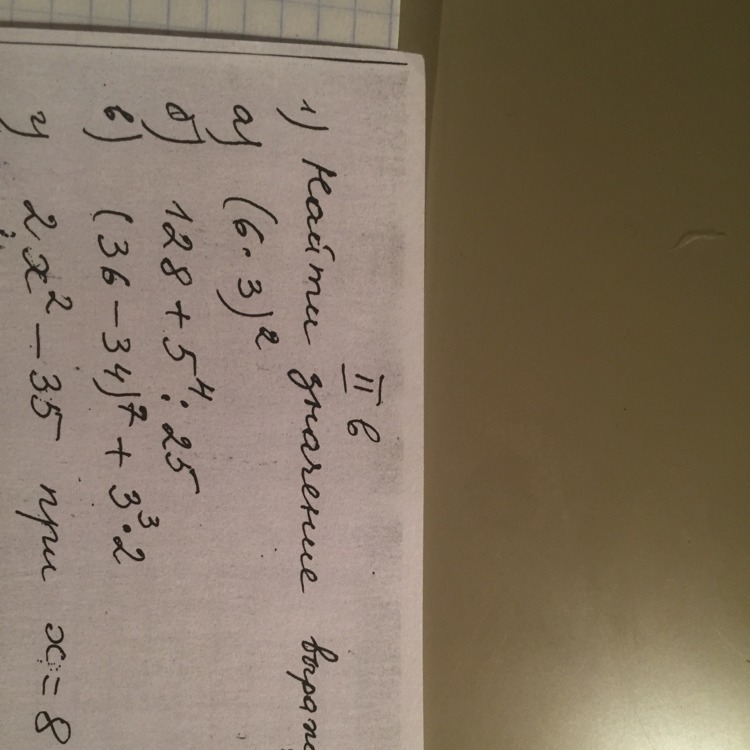 II в
1) Найти значение
а) (6·3)²
б) 128 + 5⁴ : 25
в) (36 – 34)⁷ + 3³·2
г) 2x² – 35 при x = 8